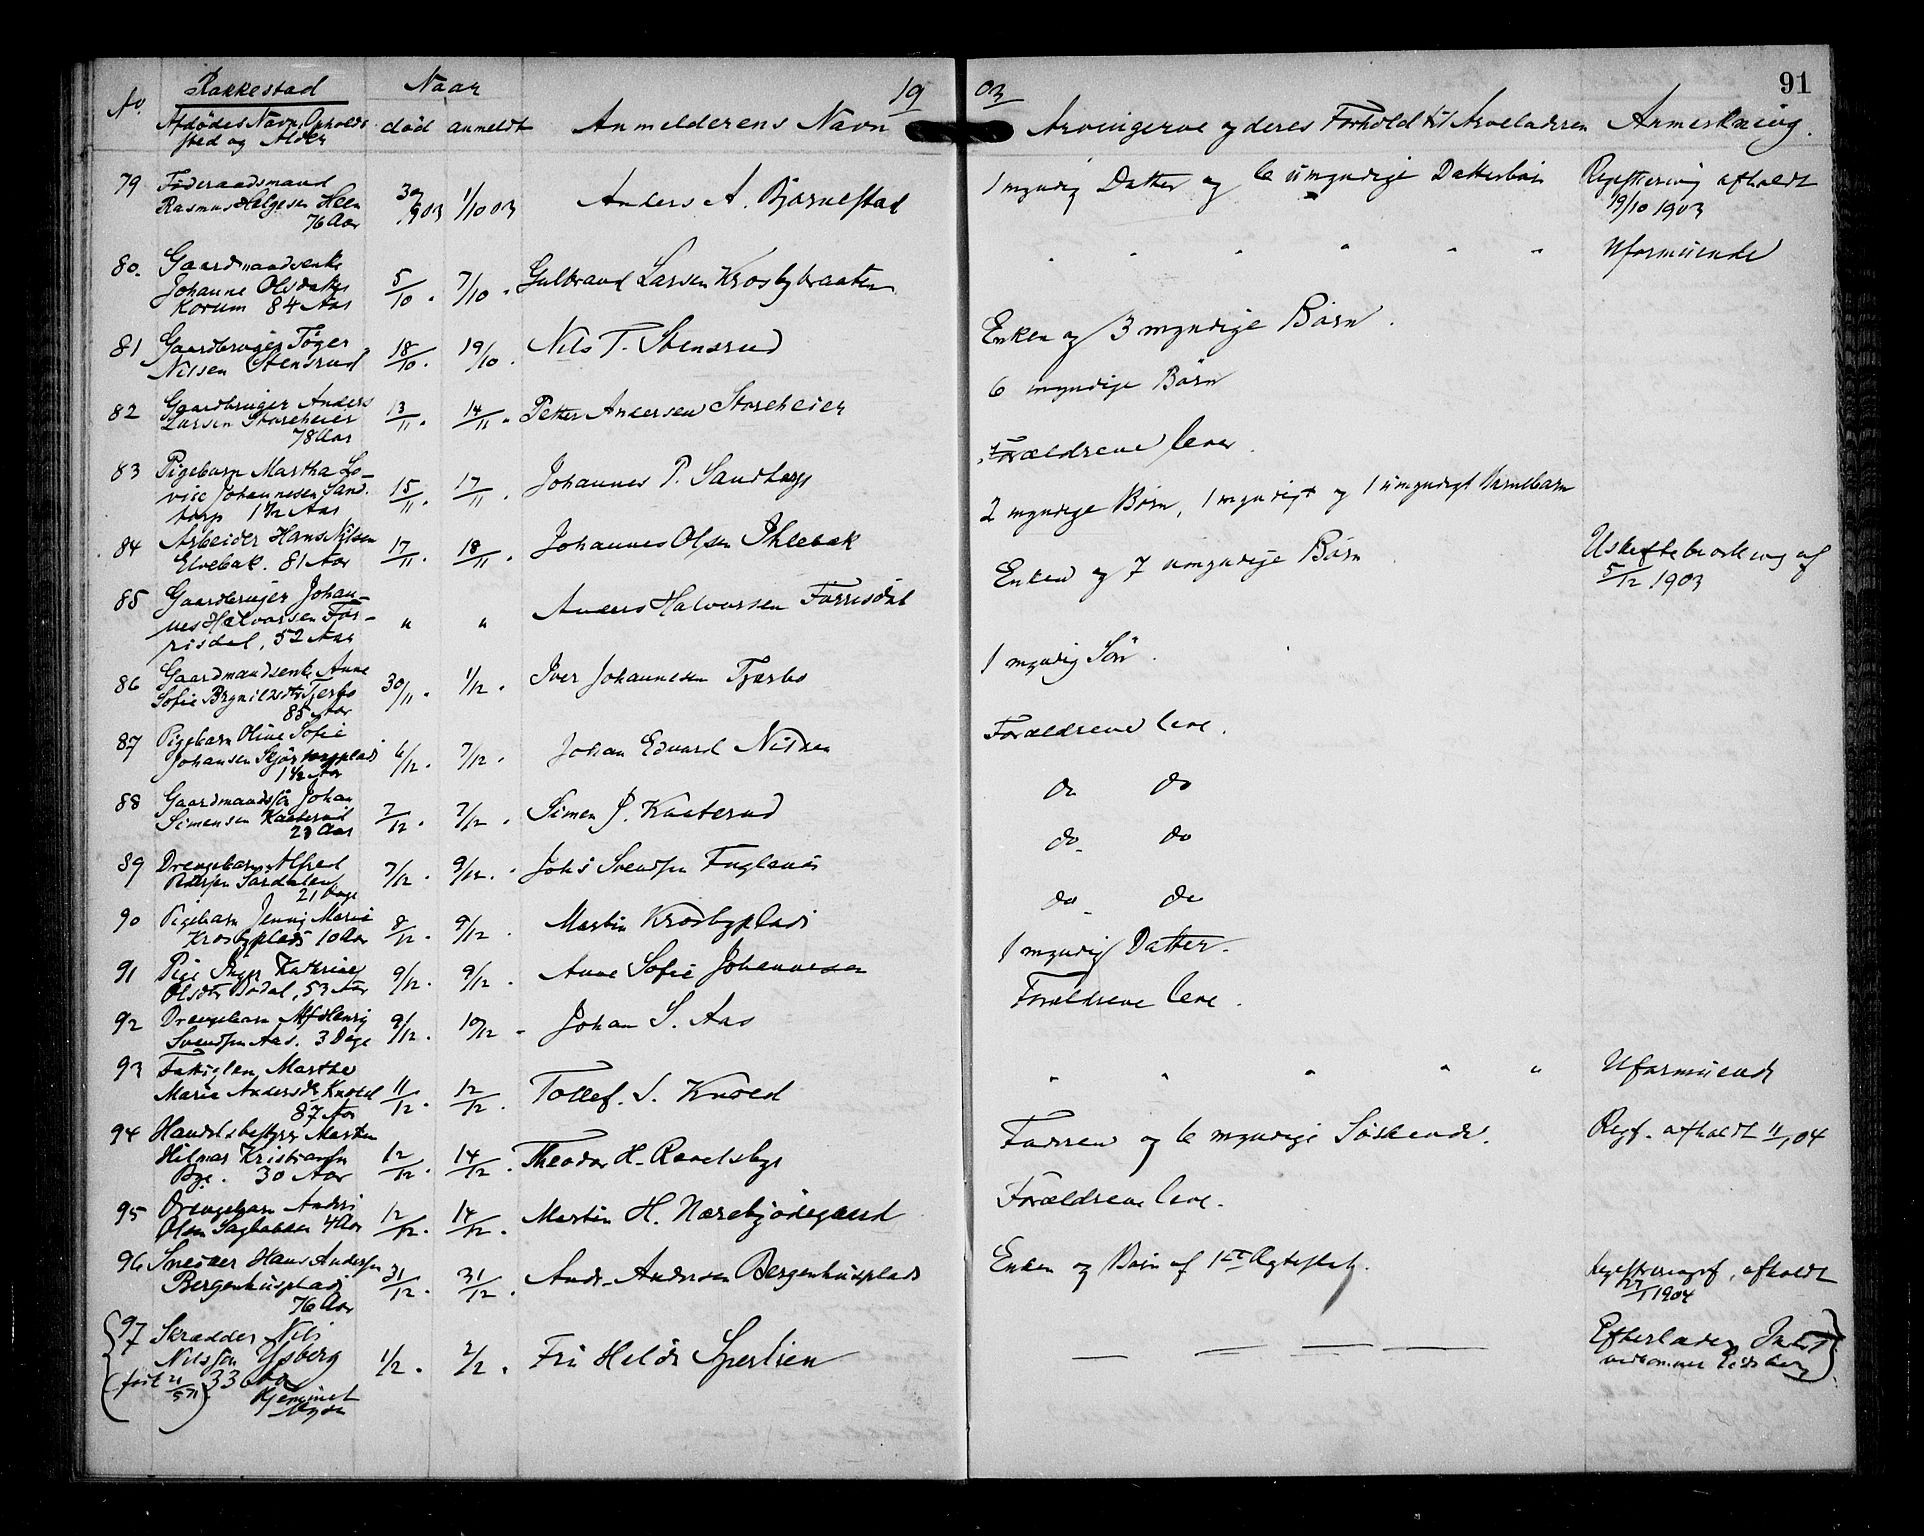 No. Rakkestad Naar 19 03 91
Afdødes Navn, Opholds- død anmeldt Anmelderens Navn Arvingerne og deres Forhold til Arveladeren Anmerkning.
sted og Alder
79 Føderaadsmand
Rasmus Helgesen Heen 30/9 03 1/10 03 Anders A. Bjørnestad 1 myndig Datter og 6 umyndige Datterbørn Registrering afholdt
76 Aar 19/10 1903
80. Gaardmandsenke
Johanne Olsdatter 5/10. 7/10. Gulbrand Larsen Krosbybraaten " " " " " " Uformuende
Korum 84 Aar
81 Gaardbruger Tøger 18/10. 19/10. Nils T. Stensrud Enken og 3 myndige Børn.
Nilsen Stensrud
82 Gaardbruger Anders 13/11. 14/11. Petter Andersen Storeheier 6 myndige Børn
Larsen Storeheier
78 Aar
83 Pigebarn Martha Lo-
vise Johannesen Sand- 15/11. 17/11. Johannes P. Sandtorp Forældrene lever.
torp 1 1/2 Aar
84 Arbeider Hans Nilsen 17/11. 18/11. Johannes Olsen Ihlebæk 2 myndige Børn, 1 myndigt og 1 umyndigt Barnebarn
Elvebak. 81 Aar
85 Gaardbruger Johan-
nes Halvorsen Før- " " Anders Halvorsen Førrisdal Enken og 7 umyndige Børn Uskiftebevilling af
risdal, 52 Aar 5/12 1903
86 Gaardmandsenke Anne
Sofie Brynildsdtr Tjerbo 30/11. 1/12. Iver Johannesen Tjærbo 1 myndig Søn.
85 Aar
87 Pigebarn Oline Sofie
Johansen Skjørtorpplads 6/12. 7/12. Johan Edvard Nilsen Forældrene leve.
1 1/2 Aar
88 Gaardmandssøn Johan
Simensen Kaaterud 7/12. 7/12. Simen J. Kaaterud do do
23 Aar
89 Drengebarn Alfred
Pettersen Sørdalen 7/12. 9/12. Johs Svendsen Fuglenes do. do
21 Dage
90 Pigebarn Jenny Marie
Krosbyplads 10 Aar 8/12. 9/12. Martin Krosbyplads do. do
91 Pige Inger Kathrine
Olsdtr Dødal, 53 Aar 9/12. 9/12. Anne Sofie Johannesen 1 myndig Datter.
92 Drengebarn Alf Henry
Svendsen Aas. 3 Dage 9/12. 10/12. Johan S. Aas Forældrene leve.
93 Fattiglem Marthe
Marie Andersdtr Knold 11/12. 12/12. Tollef. S. Knold " " " " " Uformuende
87 Aar
94 Handelsbestyrer Martin
Hilmar Kristiansen 12/12. 14/12. Theodor H. Ramdsby Farren og 6 myndige Søskende. Regs. afholdt 11/1 04
Bye. 30 Aar
95 Drengebarn Andri
Olsen Sagbakken 4 Aar 12/12. 14/12. Martin H. Nærebjødegaard Forældrene leve.
96 Snedker Hans Andersen
Bergenhusplads 31/12. 31/12. Andr. Andersen Bergenhusplads Enken og Børn af 1ste Ægteskab. Registreringsf. afholdt
76 Aar 27/1 1904
97 Skrædder Nils
Nilsson Ysberg 1/2. 2/2. Fru Hilda Sperlien — — — — Efterladen
født 33 Aar vedkommer Eidsberg